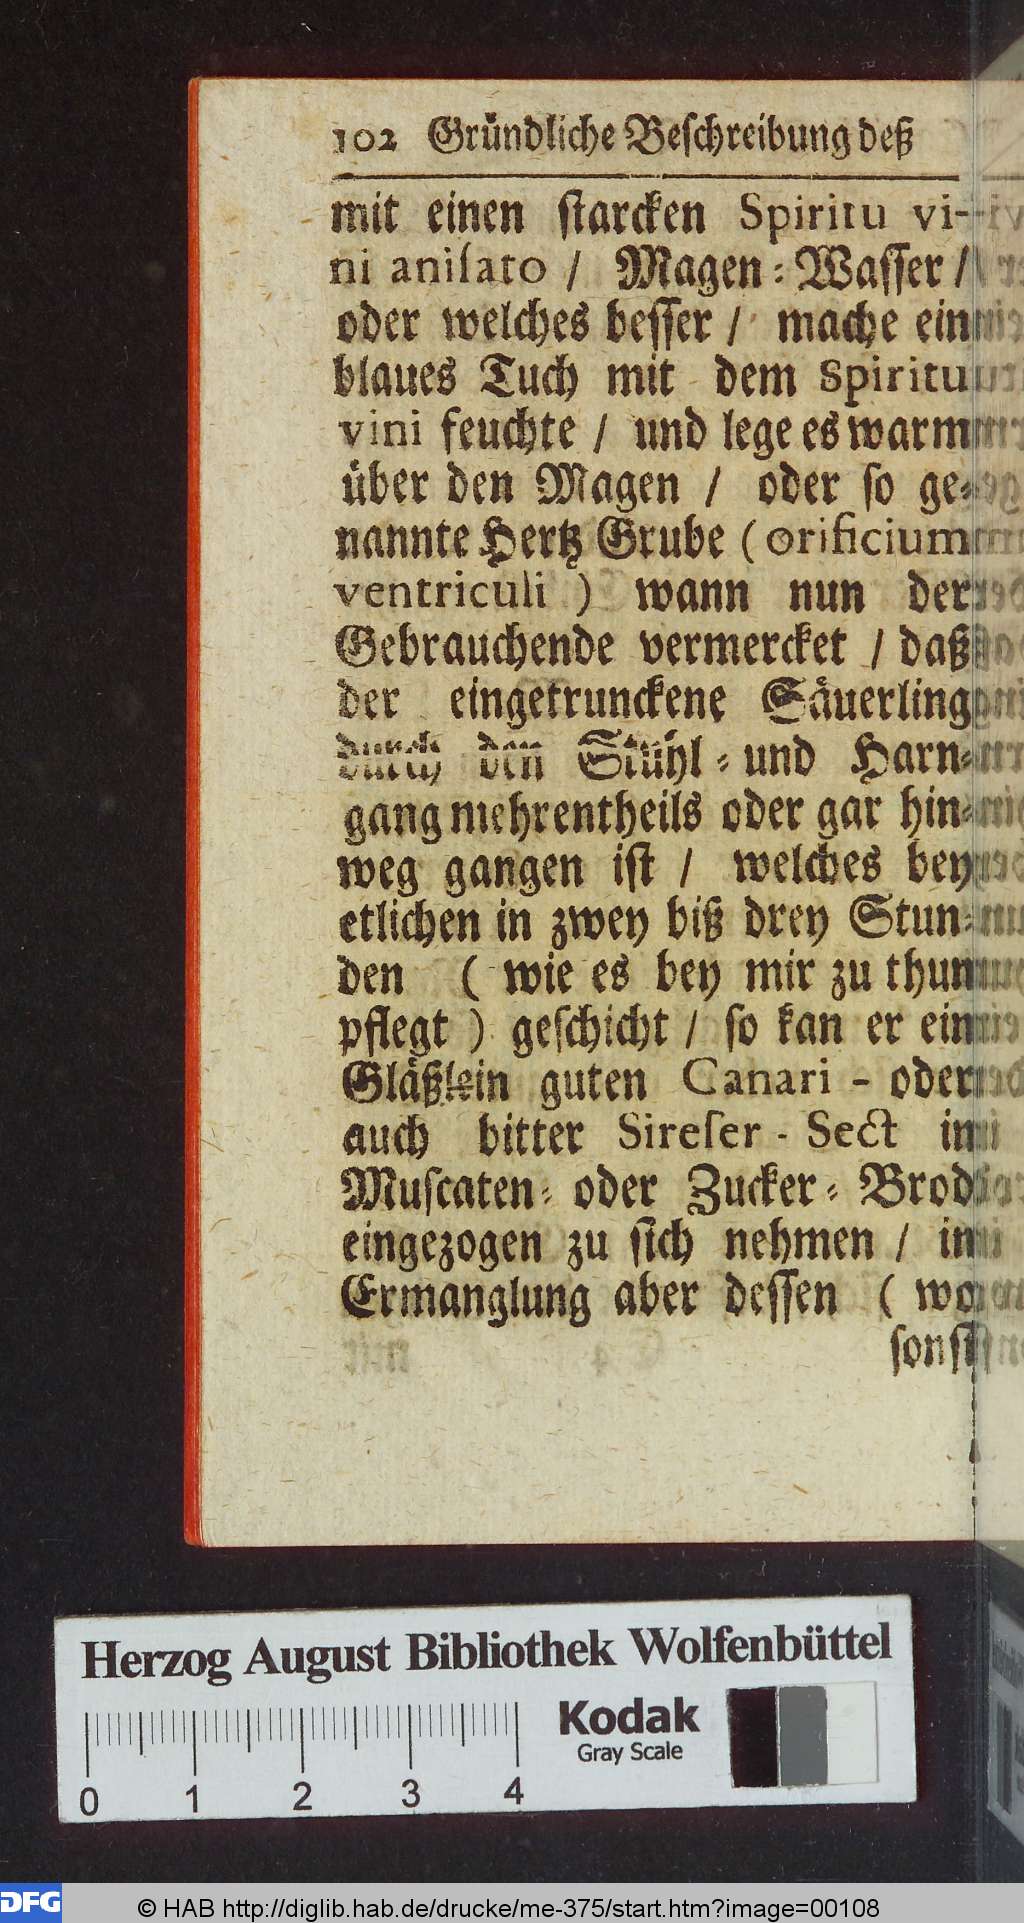 102 Gründliche Beſchreibung deß
mit einen ſtarcken Spiritu vi-
ni aniſato / Magen-Waſſer /
oder welches beſſer / mache ein
blaues Tuch mit dem Spiritu
vini feuchte / und lege es warm
über den Magen / oder ſo ge-
nannte Hertz Grube ( orificium
ventriculi ) wann nun der
Gebrauchende vermercket / daß
der eingetrunckene Säuerling
durch den Stuhl- und Harn-
gang mehrentheils oder gar hin-
weg gangen iſt / welches bey
etlichen in zwey biß drey Stun-
den ( wie es bey mir zu thun
pflegt ) geſchicht / ſo kan er ein
Gläßlein guten Canari - oder
auch bitter Sireſer - Sect in
Muſcaten- oder Zucker- Brod
eingezogen zu ſich nehmen / in
Ermanglung aber deſſen ( wo
ſonſt
Herzog August Bibliothek Wolfenbüttel
Kodak
Gray Scale
0 1 2 3 4
DFG © HAB http://diglib.hab.de/drucke/me-375/start.htm?image=00108